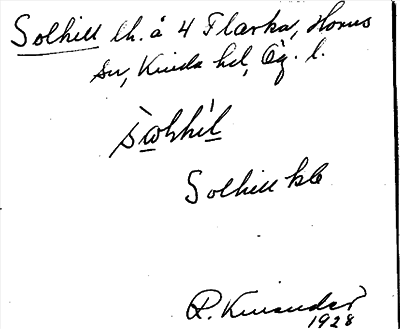 Solhill lh. å 4 Flarka, Horns
sn, Kinda hd, Ög. l.
Solhill kb
R. Kinander
1928